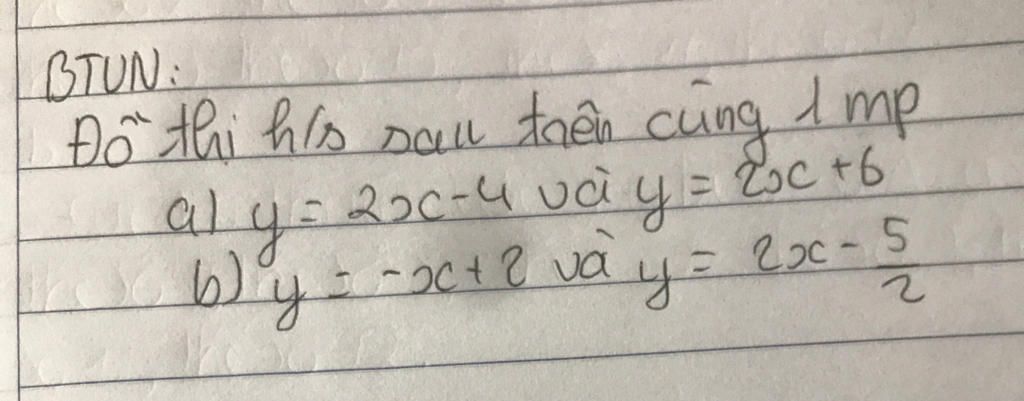 BTVN:
Đồ thị h/s sau trên cùng 1 mp
a) y = 2x-4 và y = 2x+6
b) y = -x+2 và y = 2x - 5/2